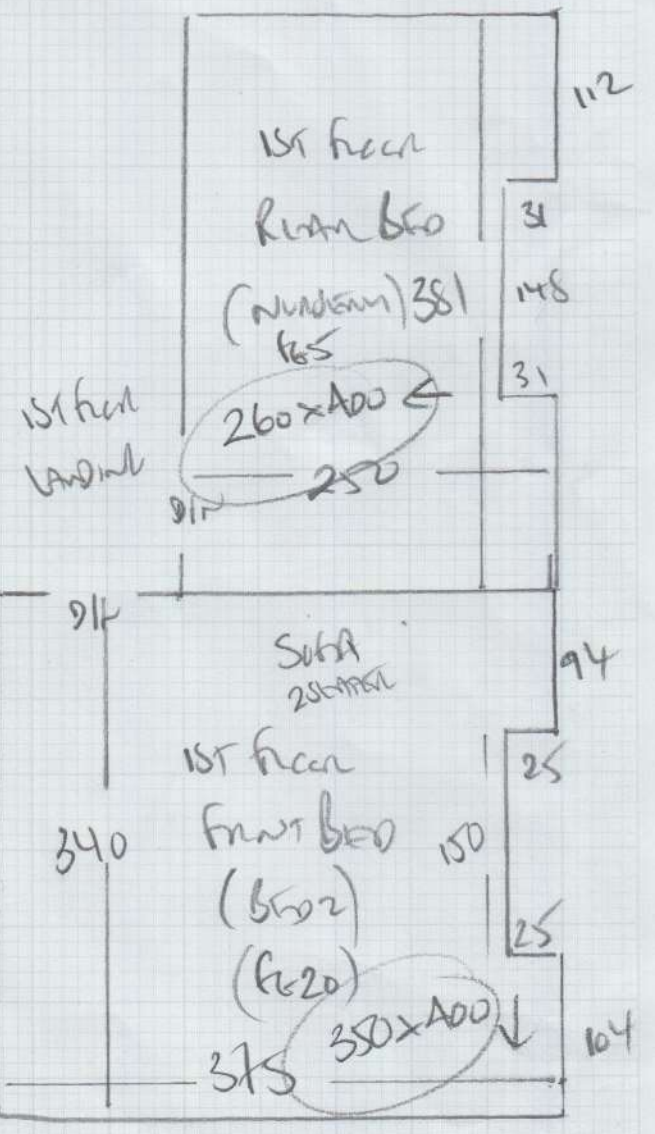 112
1ST FLOOR
REAR BED
31
(NURSERY) 381
148
31
260 x 400 ←
1ST FLOOR
LANDING
250
D/W
D/W
SOFA
2 SEATER
94
1ST FLOOR
25
FRONT BED
150
340
(BED 2)
25
(FE20)
350 x 400 ↓
104
375